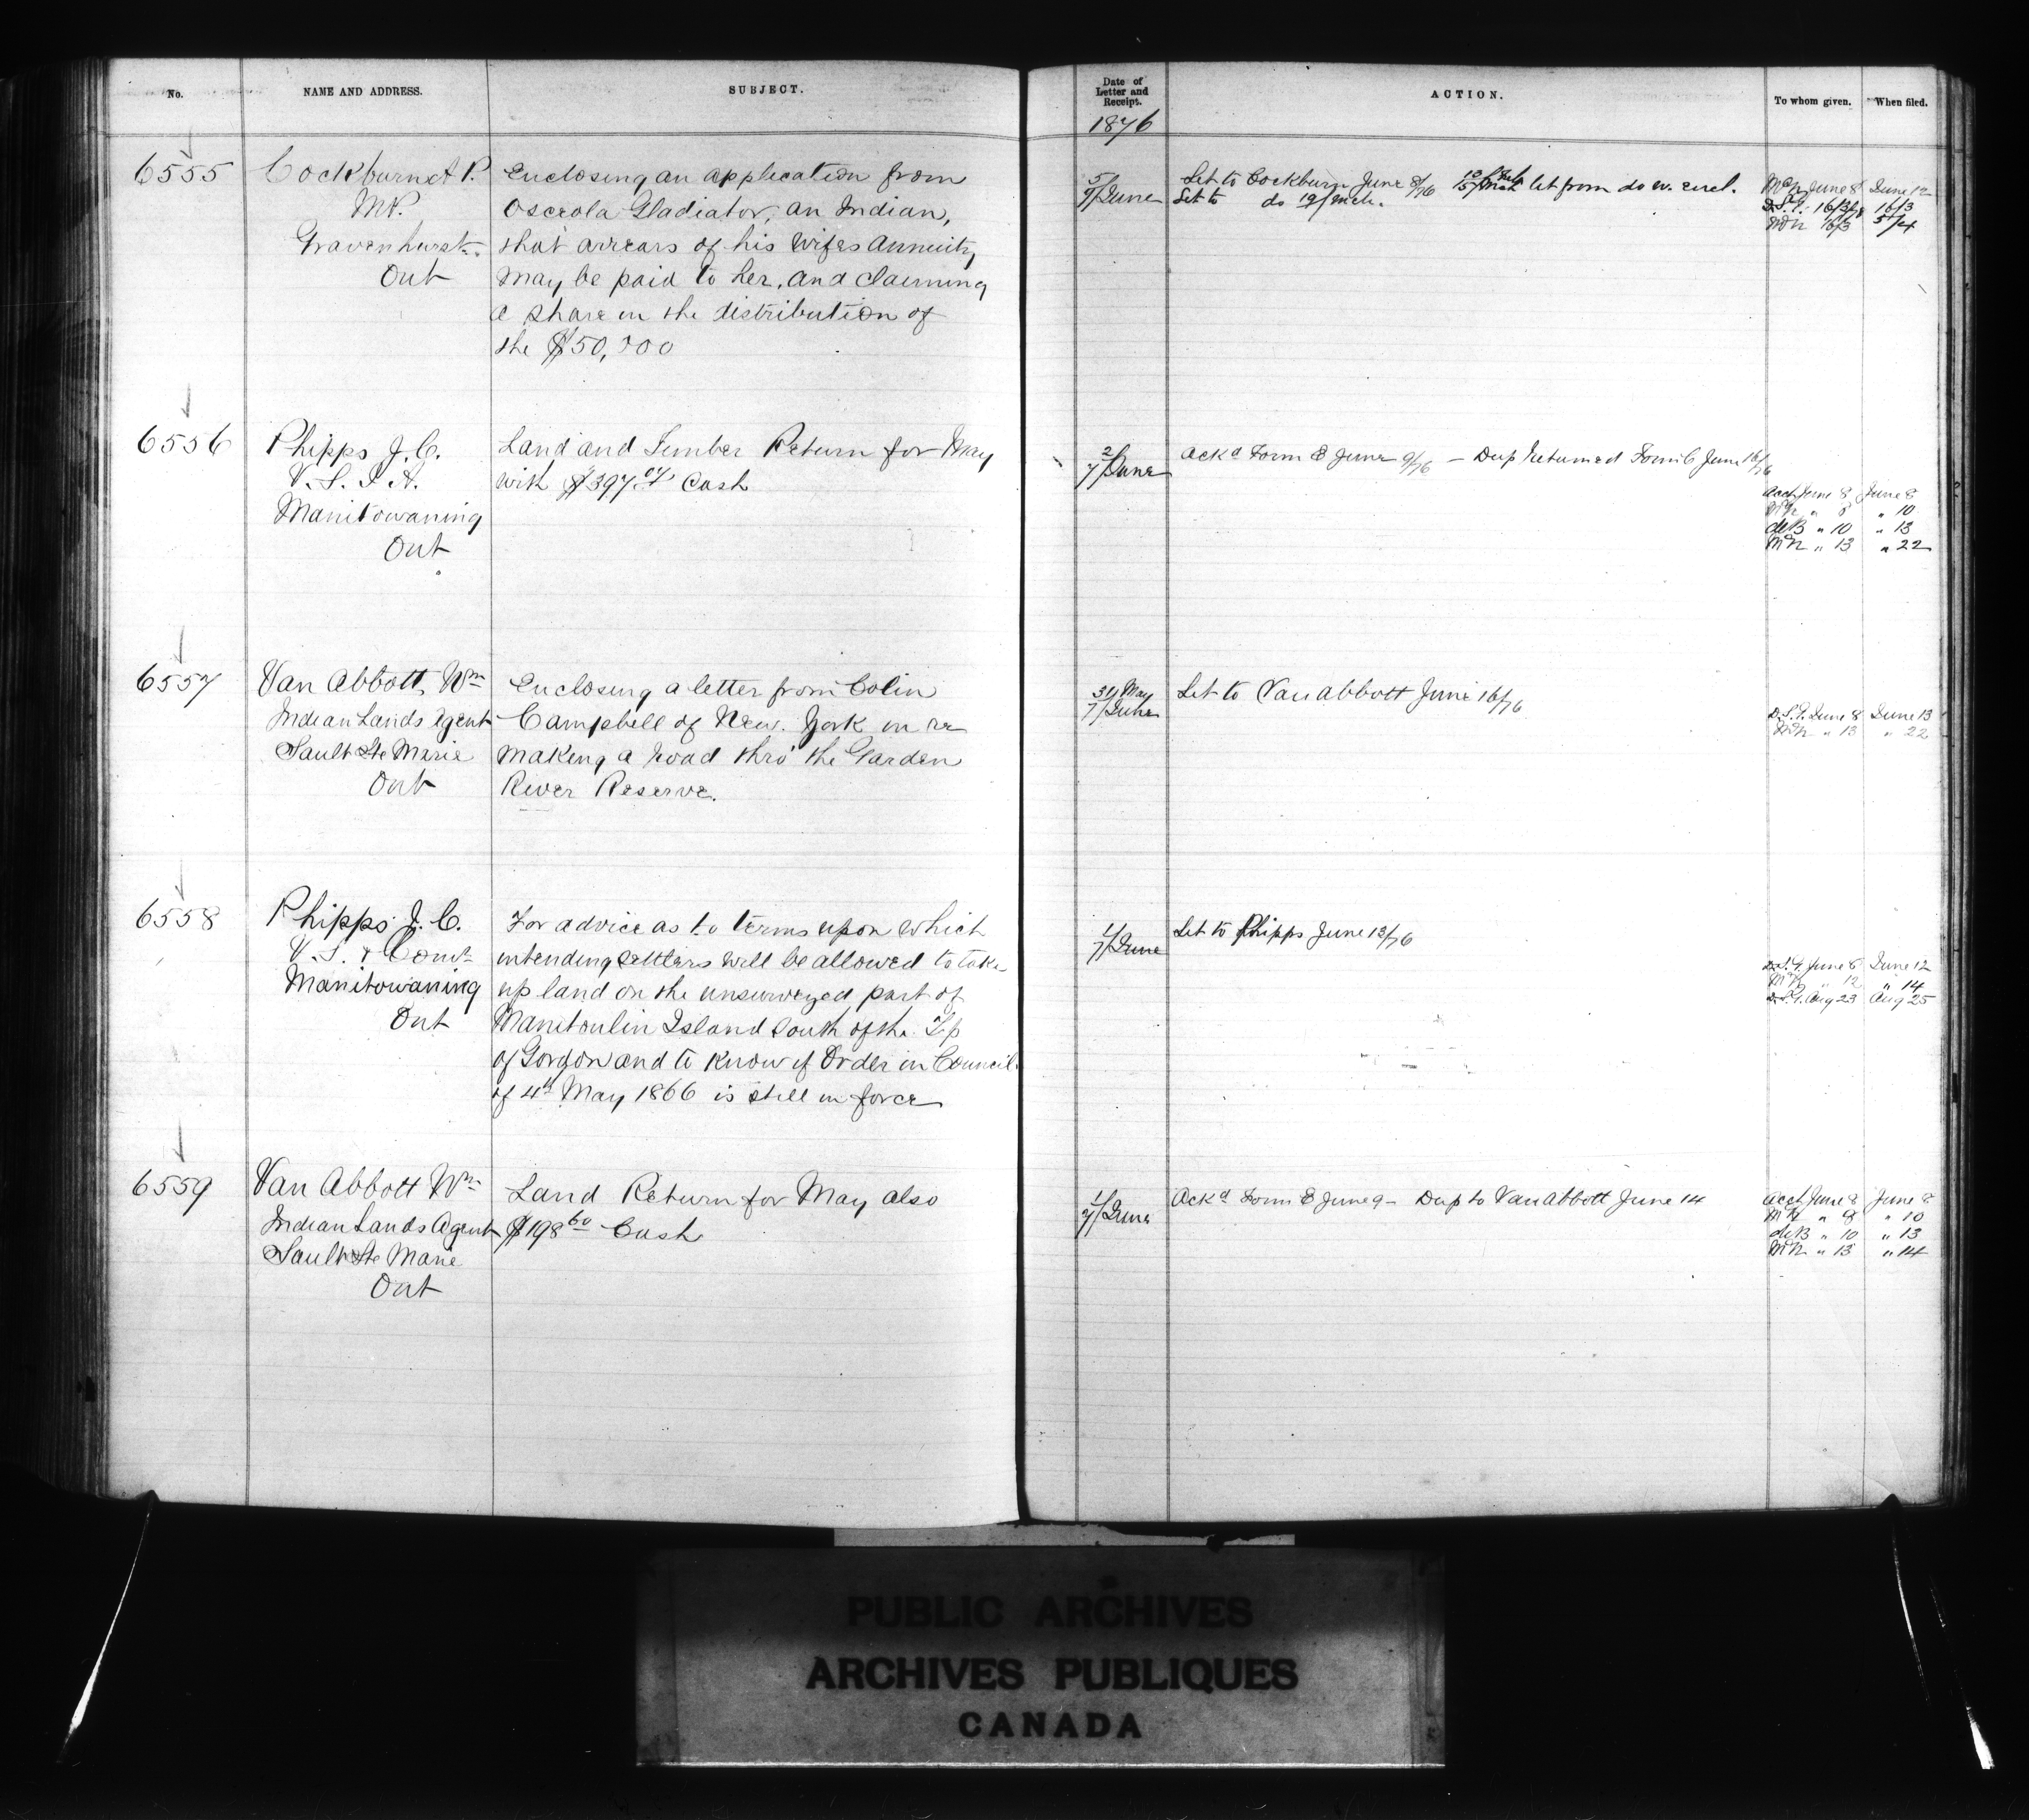 No.
NAME AND ADDRESS.
SUBJECT.
Date of
Letter and
Receipt.
1876
ACTION.
To whom given.
When filed.
6555
Cockburn A P.
MP.
Gravenhurst.
Ont
Enclosing an application from
Osceola Gladiator, an Indian,
that arrears of his wifes annuity
may be paid to her, and claiming
a share in the distribution of
the $50,000
5/
9/June
Let to Cockburn June 8/76 let from do w. encl.
Let to do 19/Mch.
McN June 8 June 12
D.S.G. 16/3 16/3
McN 16/3 5/4
6556
Phipps J. C.
V. S. I A.
Manitowaning
Ont
Land and Timber Return for May
with $397 Cash
2/
7/June
Ackd Form E June 9/76 – Dup Returned Form C June 16/76
Acct June 8 June 8
McN " 8 " 10
deB " 10 " 13
McN " 13 " 22
6557
Van Abbott, Wm
Indian Lands Agent
Sault Ste Marie
Ont
Enclosing a letter from Colin
Campbell of New York in re
making a road thro' the Garden
River Reserve.
31/May
7/June
Let to Van Abbott June 16/76
D.S.G. June 8 June 13
McN " 13 " 22
6558
Phipps J. C.
V. S. & Comr
Manitowaning
Ont
For advice as to terms upon which
intending settlers will be allowed to take
up land on the unsurveyed part of
Manitoulin Island south of the Tp
of Gordon and to know if Order in Council
of 4th May 1866 is still in force
1/
7/June
Let to Phipps June 13/76
D.S.G. June 8 June 12
McN " 12 " 14
D.S.G. Aug 23 Aug 25
6559
Van Abbott Wm
Indian Lands Agent
Sault Ste Marie
Ont
Land Return for May also
$198 60 Cash
1/
7/June
Ackd Form E June 9 – Dup to Van Abbott June 14
Acct June 8 June 8
McN " 8 " 10
deB " 10 " 13
McN " 13 " 14
PUBLIC ARCHIVES
ARCHIVES PUBLIQUES
CANADA